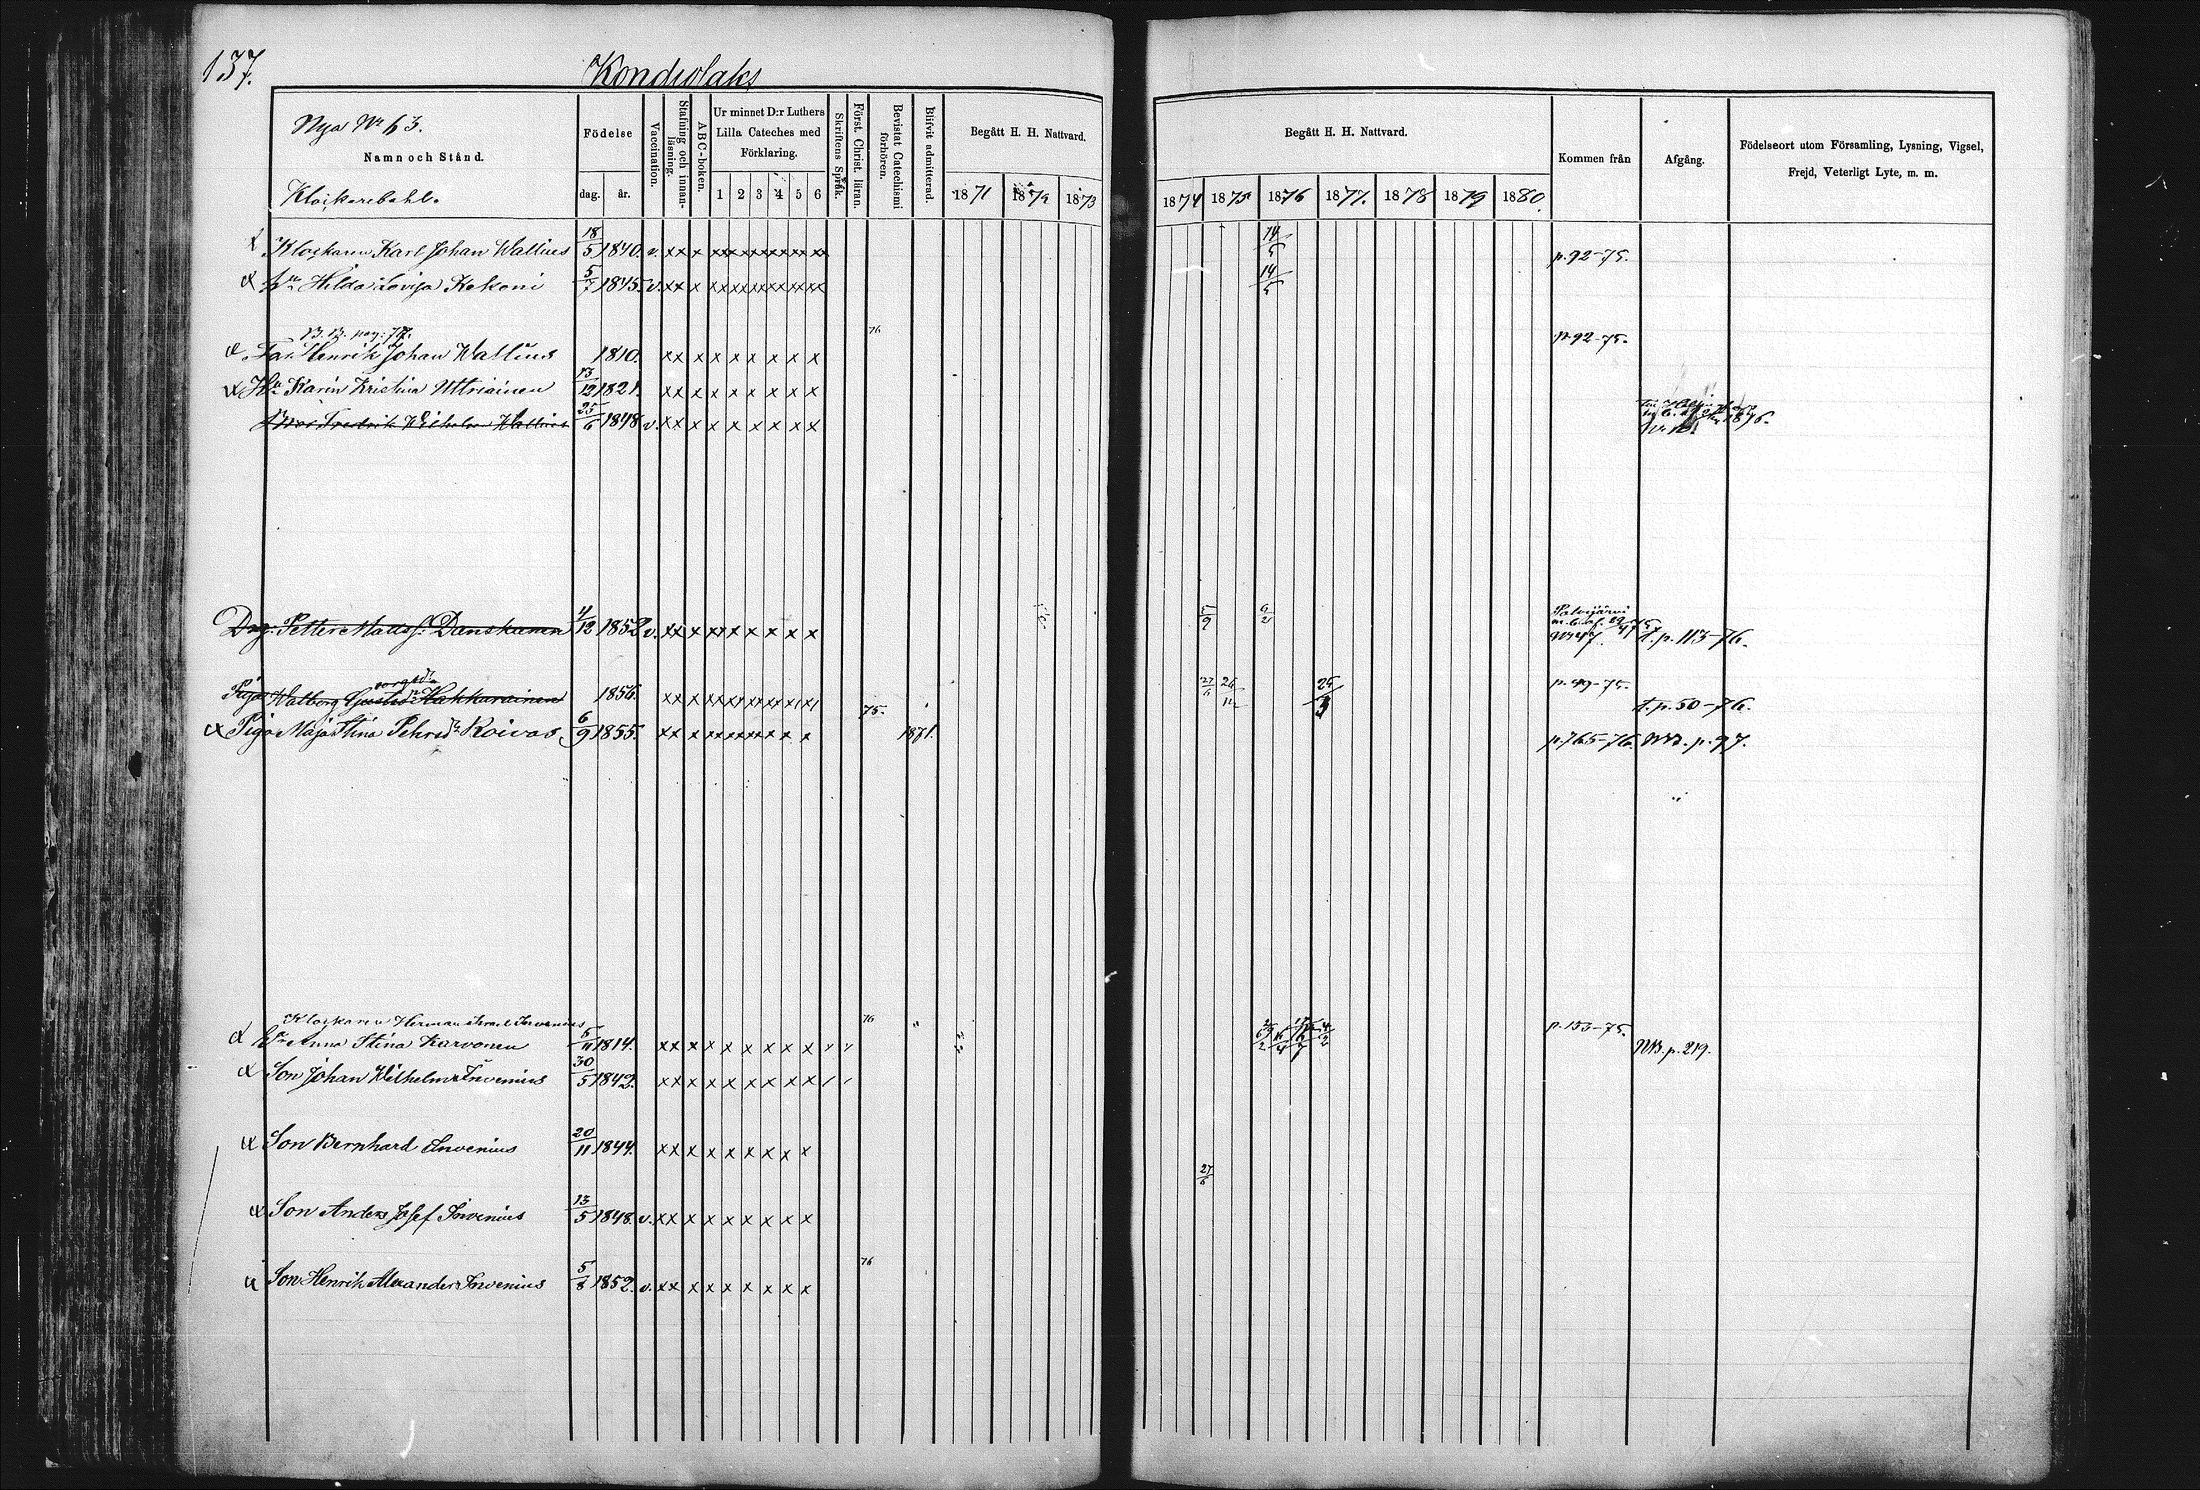 137.
Kondiolaks
Nya No 63.
Namn och Stånd.
Klockarebohl.
Födelse
dag. år.
Vaccination.
Stafning och innanläsning.
A B C-boken.
Ur minnet D:r Luthers Lilla Cateches med Förklaring.
1 2 3 4 5 6
Skriftens Språk.
Först. Christ. läran.
Bevistat Catechismi förhören.
Blifvit admitterad.
Begått H. H. Nattvard.
1871 1872 1873
Begått H. H. Nattvard.
1874 1875 1876 1877. 1878 1879 1880.
Kommen från
Afgång.
Födelseort utom Församling, Lysning, Vigsel,
Frejd, Veterligt Lyte, m. m.
Klockaren Karl Johan Wallius 18/5 1840. v. xx x xx xx xx xx xx xx 14/5 p.92-75.
Hilda Lovisa Kokoni 5/7 1845. v. xx x xx xx xx xx xx xx 14/5
76 p.92-75.
Far Henrik Johan Wallius 1810. xx x x x x x x x
Hu Karin Kristina Uttriainen 13/12 1821. xx x x x x x x x
Fredrik Wilhelm Wallius 25/6 1848 v. xx x x x x x x x 1876.
Drg: Petter Matts s. Danskanen 4/12 1852 v. xx x xx x x x x x Nr 47. t.p. 113-76.
Piga Walborg Gustds Hakkarainen 1856. xx x 25/3 -75. t.p. 50-76.
75.
Piga Maja Stina Pehrsdr Koivas 6/9 1855. xx x x 1871. p.765-76. NB. p. 97.
Klockaren Herman Invenius 76 p.153-75.
Anna Stina Karvonen 5/11 1814. xx x x x x x x x NB. p. 219.
Son Johan Wilhelm Invenius 30/5 1842. xx x x x x x x x
Son Bernhard Invenius 20/11 1844. xx x x x x x x x
27/6
Son Anders Josef Invenius 13/5 1848. v. xx x x x x x x x
76
Son Henrik Alexander Invenius 5/8 1852. v. xx x x x x x x x